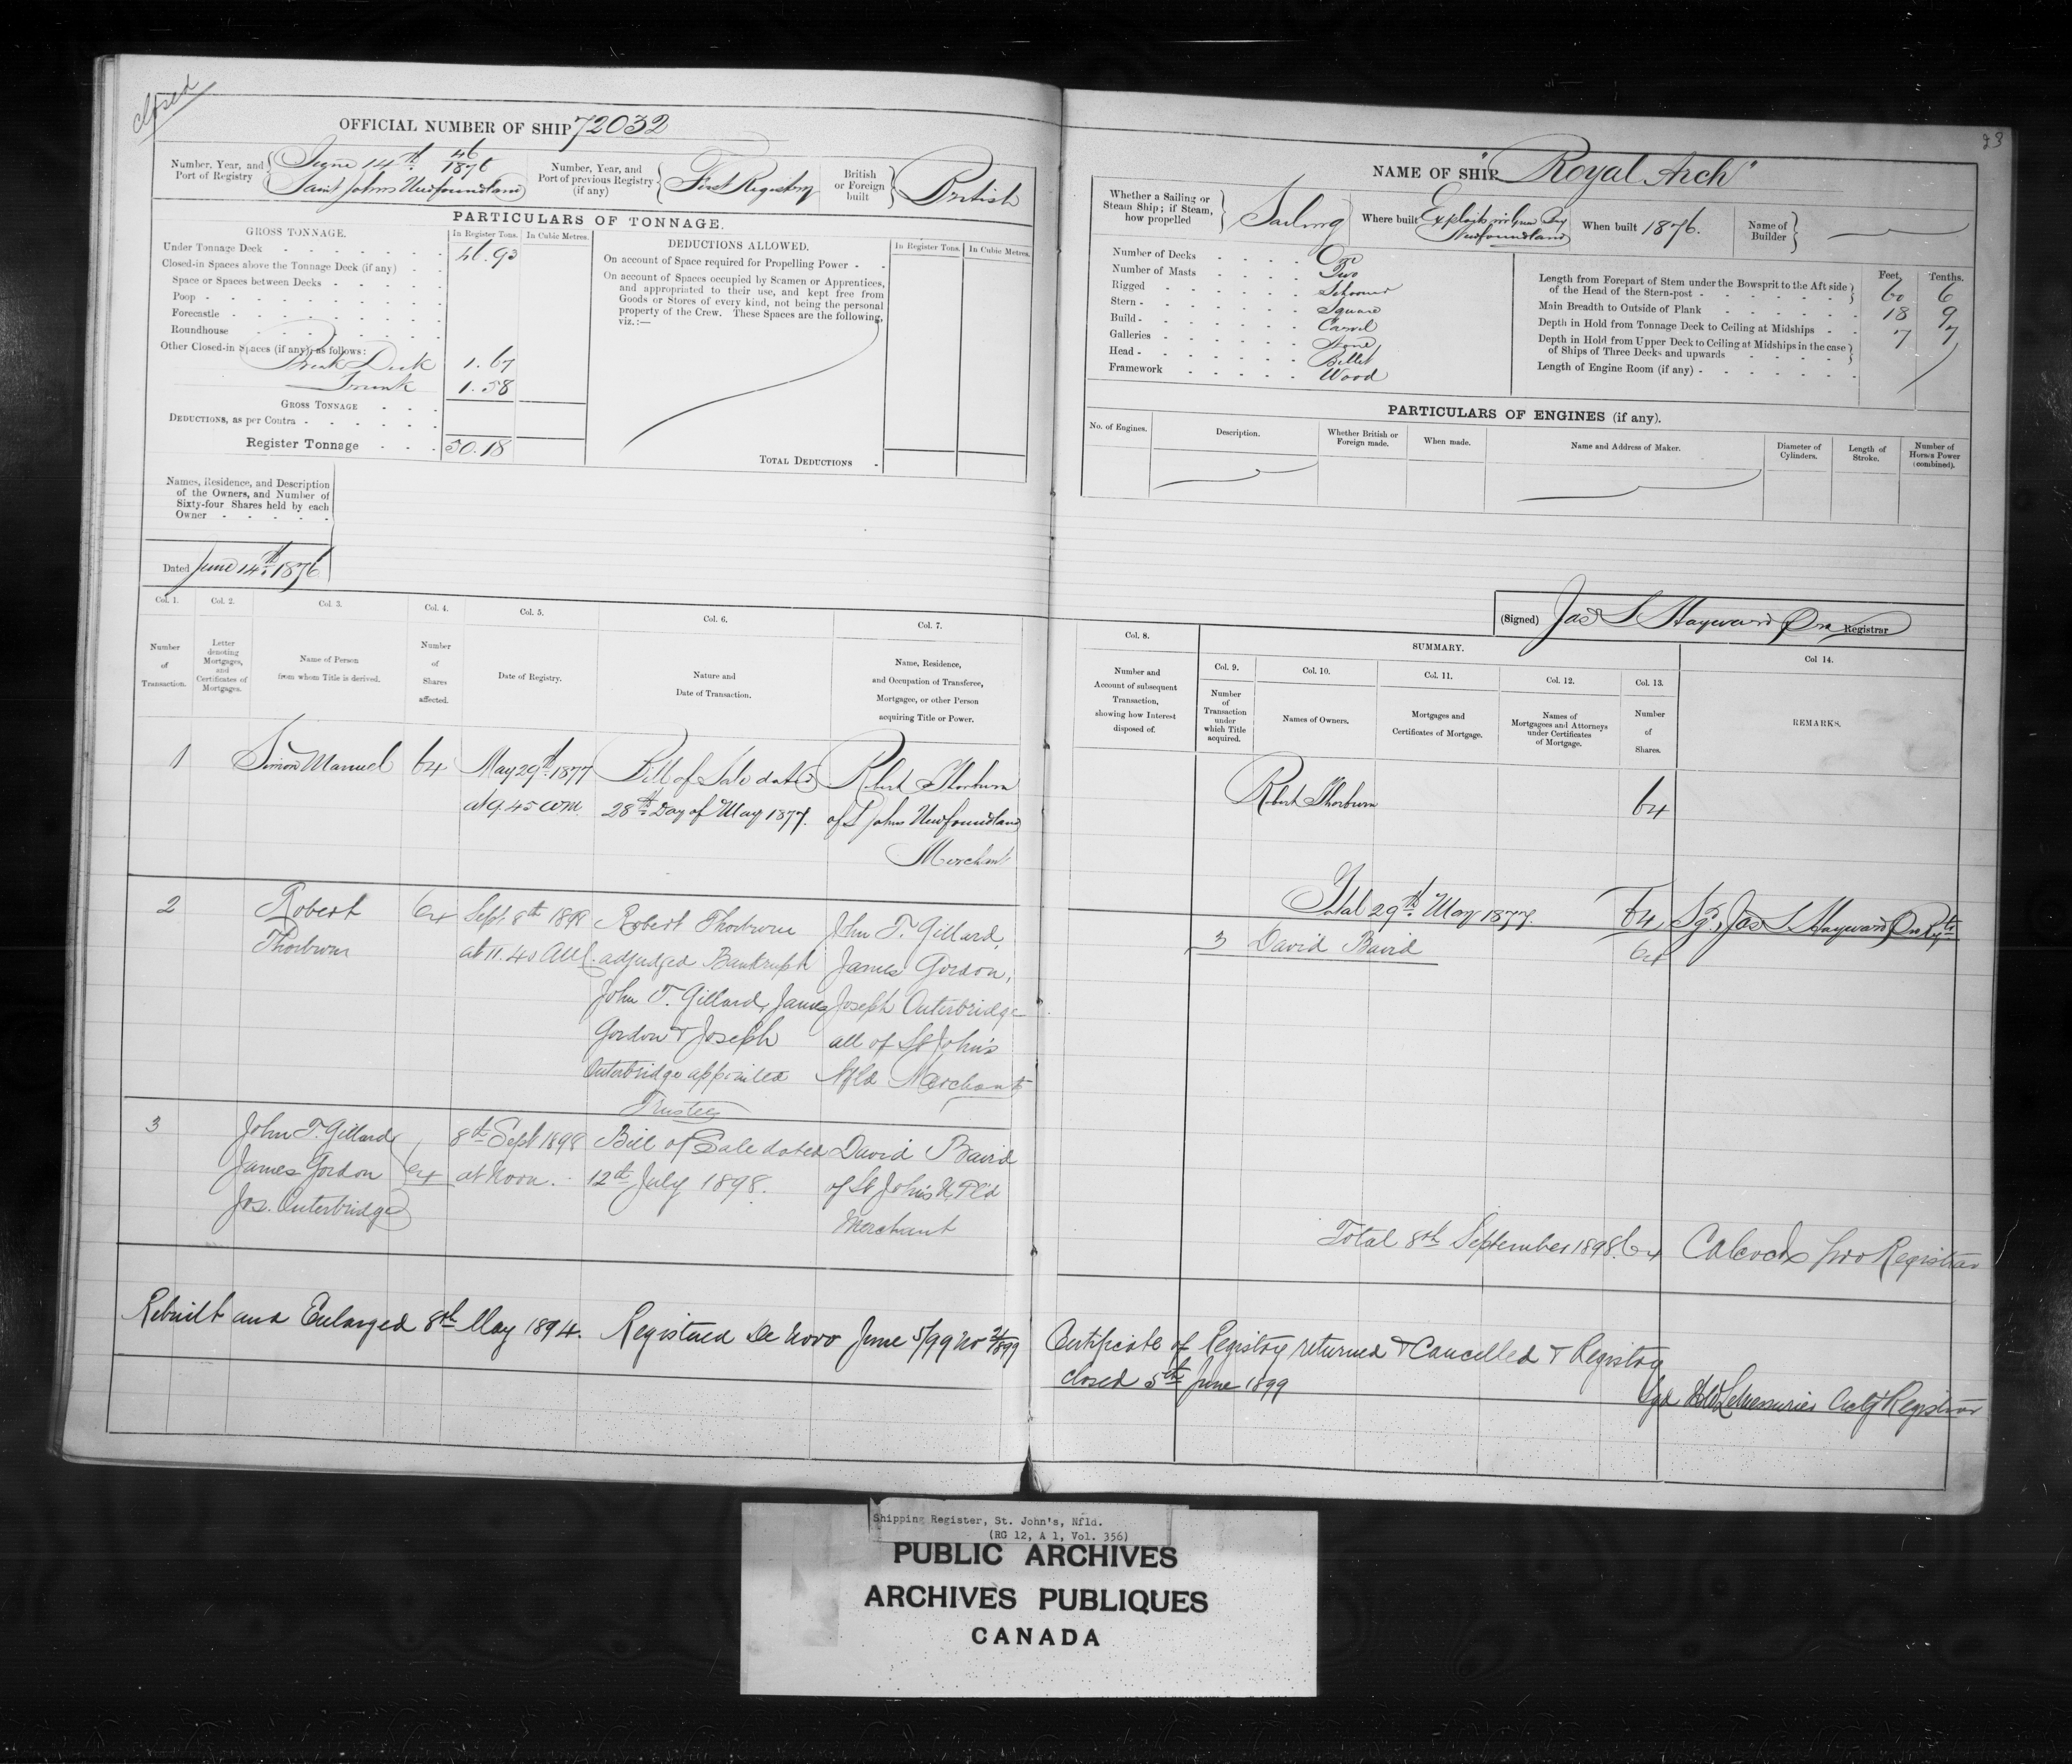 closed
23
OFFICIAL NUMBER OF SHIP 72032
Number, Year, and Port of Registry { June 14th 46/1876
Saint Johns Newfoundland
Number, Year, and Port of previous Registry (if any) { First Registry
British or Foreign built { British
PARTICULARS OF TONNAGE.
GROSS TONNAGE.
In Register Tons. In Cubic Metres.
Under Tonnage Deck 46.93
Closed-in Spaces above the Tonnage Deck (if any)
Space or Spaces between Decks
Poop
Forecastle
Roundhouse
Other Closed-in Spaces (if any), as follows:
Break Deck 1.67
Trunk 1.58
GROSS TONNAGE
DEDUCTIONS, as per Contra
Register Tonnage 50.18
DEDUCTIONS ALLOWED.
In Register Tons. In Cubic Metres.
On account of Space required for Propelling Power
On account of Spaces occupied by Seamen or Apprentices,
and appropriated to their use, and kept free from
Goods or Stores of every kind, not being the personal
property of the Crew. These Spaces are the following,
viz.:—
TOTAL DEDUCTIONS
Names, Residence, and Description
of the Owners, and Number of
Sixty-four Shares held by each
Owner
Dated June 14th 1876
NAME OF SHIP "Royal Arch"
Whether a Sailing or Steam Ship; if Steam, how propelled } Sailing
Where built Exploits Bay
Newfoundland
When built 1876.
Name of Builder }
Number of Decks One
Number of Masts Two
Rigged Schooner
Stern Square
Build Carvel
Galleries None
Head Billet
Framework Wood
Feet, Tenths.
Length from Forepart of Stem under the Bowsprit to the Aft side
of the Head of the Stern-post } 60 6
Main Breadth to Outside of Plank 18 9
Depth in Hold from Tonnage Deck to Ceiling at Midships 7 7
Depth in Hold from Upper Deck to Ceiling at Midships in the case
of Ships of Three Decks and upwards }
Length of Engine Room (if any)
PARTICULARS OF ENGINES (if any).
No. of Engines. Description. Whether British or Foreign made. When made. Name and Address of Maker. Diameter of Cylinders. Length of Stroke. Number of Horses Power (combined).
(Signed) Jas S Hayward Registrar
Col. 1. Col. 2. Col. 3. Col. 4. Col. 5. Col. 6. Col. 7.
Number of Transaction.
Letter denoting Mortgages, and Certificates of Mortgages.
Name of Person from whom Title is derived.
Number of Shares affected.
Date of Registry.
Nature and Date of Transaction.
Name, Residence, and Occupation of Transferee, Mortgagee, or other Person acquiring Title or Power.
Col. 8.
Number and Account of subsequent Transaction, showing how Interest disposed of.
SUMMARY.
Col. 9. Col. 10. Col. 11. Col. 12. Col. 13. Col 14.
Number of Transaction under which Title acquired.
Names of Owners.
Mortgages and Certificates of Mortgage.
Names of Mortgagees and Attorneys under Certificates of Mortgage.
Number of Shares.
REMARKS.
1 Simon Manuel 64 May 29th 1877 Bill of Sale dated Robert Thorburn
at 9.45 am. 28th Day of May 1877. of St Johns Newfoundland
Merchant
Robert Thorburn 64
2 Robert 64 Sept 8th 1898 Robert Thorburn John T. Gillard,
Thorburn at 11.40 AM. adjudged Bankrupt James Gordon,
John T. Gillard, James Joseph Outerbridge
Gordon & Joseph all of St John's
Outerbridge appointed Nfld Merchants
Trustees
Total 29th May 1877. 64 Jas S Hayward
3 David Baird 64
3 John T. Gillard 8th Sept 1898 Bill of Sale dated David Baird
James Gordon 64 at Noon. 12th July 1898. of St John's N.F'l'd
Jos. Outerbridge Merchant
Total 8th September 1898. 64 pro Registrar
Rebuilt and Enlarged 8th May 1894. Registered De Novo June 5/99 No
Certificate of Registry returned & Cancelled & Registry
closed 5th June 1899
Sgd LeMessurier Actg Registrar
Shipping Register, St. John's, Nfld.
(RG 12, A 1, Vol. 356)
PUBLIC ARCHIVES
ARCHIVES PUBLIQUES
CANADA